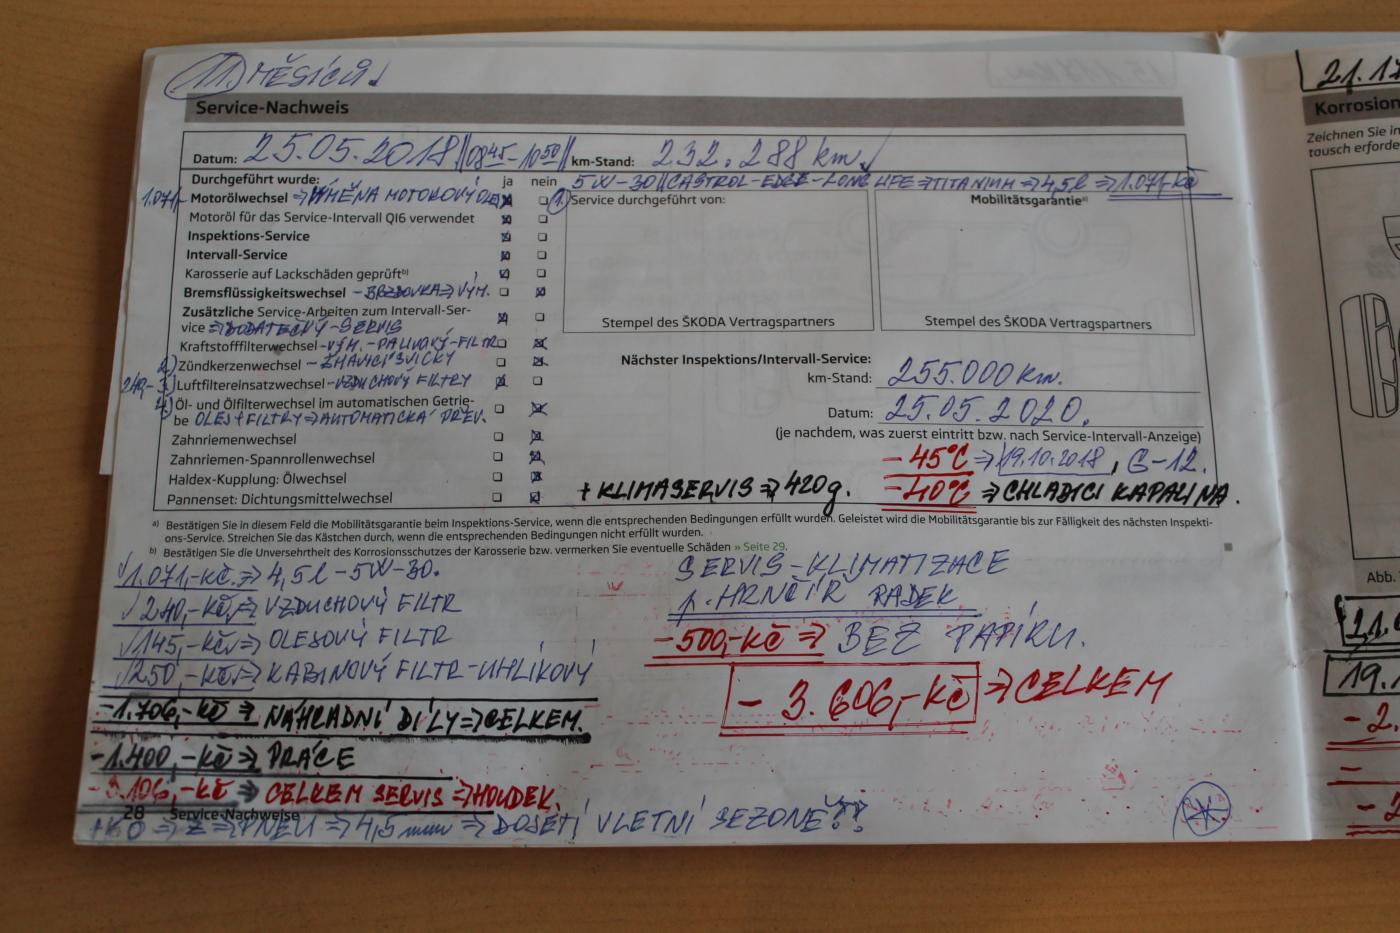 11. MĚSÍCŮ
Service-Nachweis
Datum: 25.05.2018 || 08 45 - 10 50 || km-Stand: 232.288 km
Durchgeführt wurde: ja nein
5W-30 || CASTROL-EDGE-LONG LIFE ⇒ TITANIUM ⇒ 4,5l ⇒ 1.071,-Kč
1.071,- Motorölwechsel ⇒ VÝMĚNA MOTOROVÝ OLEJ
1. Service durchgeführt von:
Mobilitätsgarantie a)
Motoröl für das Service-Intervall QI6 verwendet
Inspektions-Service
Intervall-Service
Karosserie auf Lackschäden geprüft b)
Bremsflüssigkeitswechsel - BRZDOVKA ⇒ VÝM.
Zusätzliche Service-Arbeiten zum Intervall-Ser-
vice ⇒ DODATEČNÝ - SERVIS
Stempel des ŠKODA Vertragspartners
Stempel des ŠKODA Vertragspartners
Kraftstofffilterwechsel - VÝM. - PALIVOVÝ - FILTR
2.) Zündkerzenwechsel - ŽHAVICÍ SVÍČKY
240,- 3.) Luftfiltereinsatzwechsel - VZDUCHOVÝ FILTRY
4.) Öl- und Ölfilterwechsel im automatischen Getrie-
be OLEJ + FILTRY ⇒ AUTOMATICKÁ PŘEV.
Zahnriemenwechsel
Zahnriemen-Spannrollenwechsel
Haldex-Kupplung: Ölwechsel
Pannenset: Dichtungsmittelwechsel
Nächster Inspektions/Intervall-Service:
km-Stand: 255.000 km.
Datum: 25.05.2020.
(je nachdem, was zuerst eintritt bzw. nach Service-Intervall-Anzeige)
- 45°C ⇒ 19.10.2018, G-12.
+ KLIMASERVIS ⇒ 420g. - 40°C ⇒ CHLADICI KAPALINA.
a) Bestätigen Sie in diesem Feld die Mobilitätsgarantie beim Inspektions-Service, wenn die entsprechenden Bedingungen erfüllt wurden. Geleistet wird die Mobilitätsgarantie bis zur Fälligkeit des nächsten Inspekti-
ons-Service. Streichen Sie das Kästchen durch, wenn die entsprechenden Bedingungen nicht erfüllt wurden.
b) Bestätigen Sie die Unversehrtheit des Korrosionsschutzes der Karosserie bzw. vermerken Sie eventuelle Schäden » Seite 29.
1.071,-Kč ⇒ 4,5l - 5W-30.
240,-Kč ⇒ VZDUCHOVÝ FILTR
145,-Kč ⇒ OLEJOVÝ FILTR
250,-Kč ⇒ KABINOVÝ FILTR-UHLÍKOVÝ
- 1.706,-Kč ⇒ NÁHRADNÍ DÍLY ⇒ CELKEM.
- 1.400,-Kč ⇒ PRÁCE
- 3.106,-Kč ⇒ CELKEM SERVIS ⇒ HOUDEK.
28 Service-Nachweise
⇒ PNEU ⇒ 4,5 mm ⇒ DOJETÍ V LETNÍ SEZONĚ
SERVIS-KLIMATIZACE
p. HRNČÍŘ RADEK
- 500,-Kč ⇒ BEZ PAPÍRU.
- 3.606,-Kč ⇒ CELKEM
21.17
Korrosion
Zeichnen Sie in
tausch erforde
Abb.
19.1
- 2.